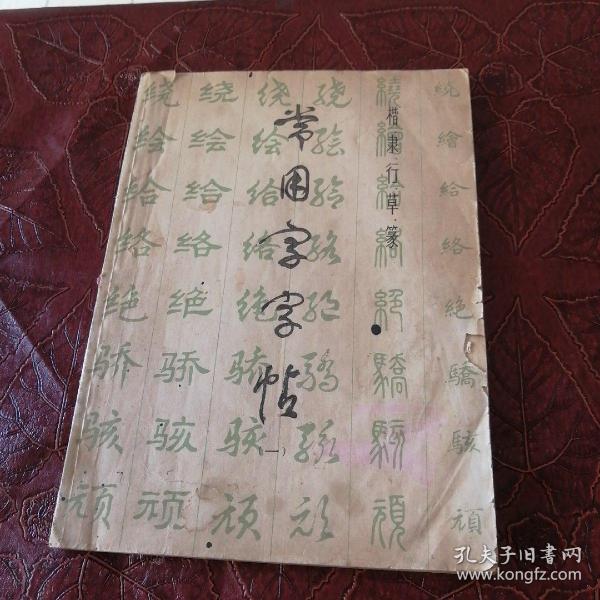 常用字字帖
(一)
楷·隶·行·草·篆
绕 绕 绕 绕 繞 繞
绘 绘 绘 绘 繪 繪
给 给 给 给 給 給
络 络 络 络 絡 絡
绝 绝 绝 绝 絕 絶
骄 骄 骄 驕 驕 驕
骇 骇 骇 骇 駭 駭
顽 顽 顽 顽 頑 頑
孔夫子旧书网
www.kongfz.com